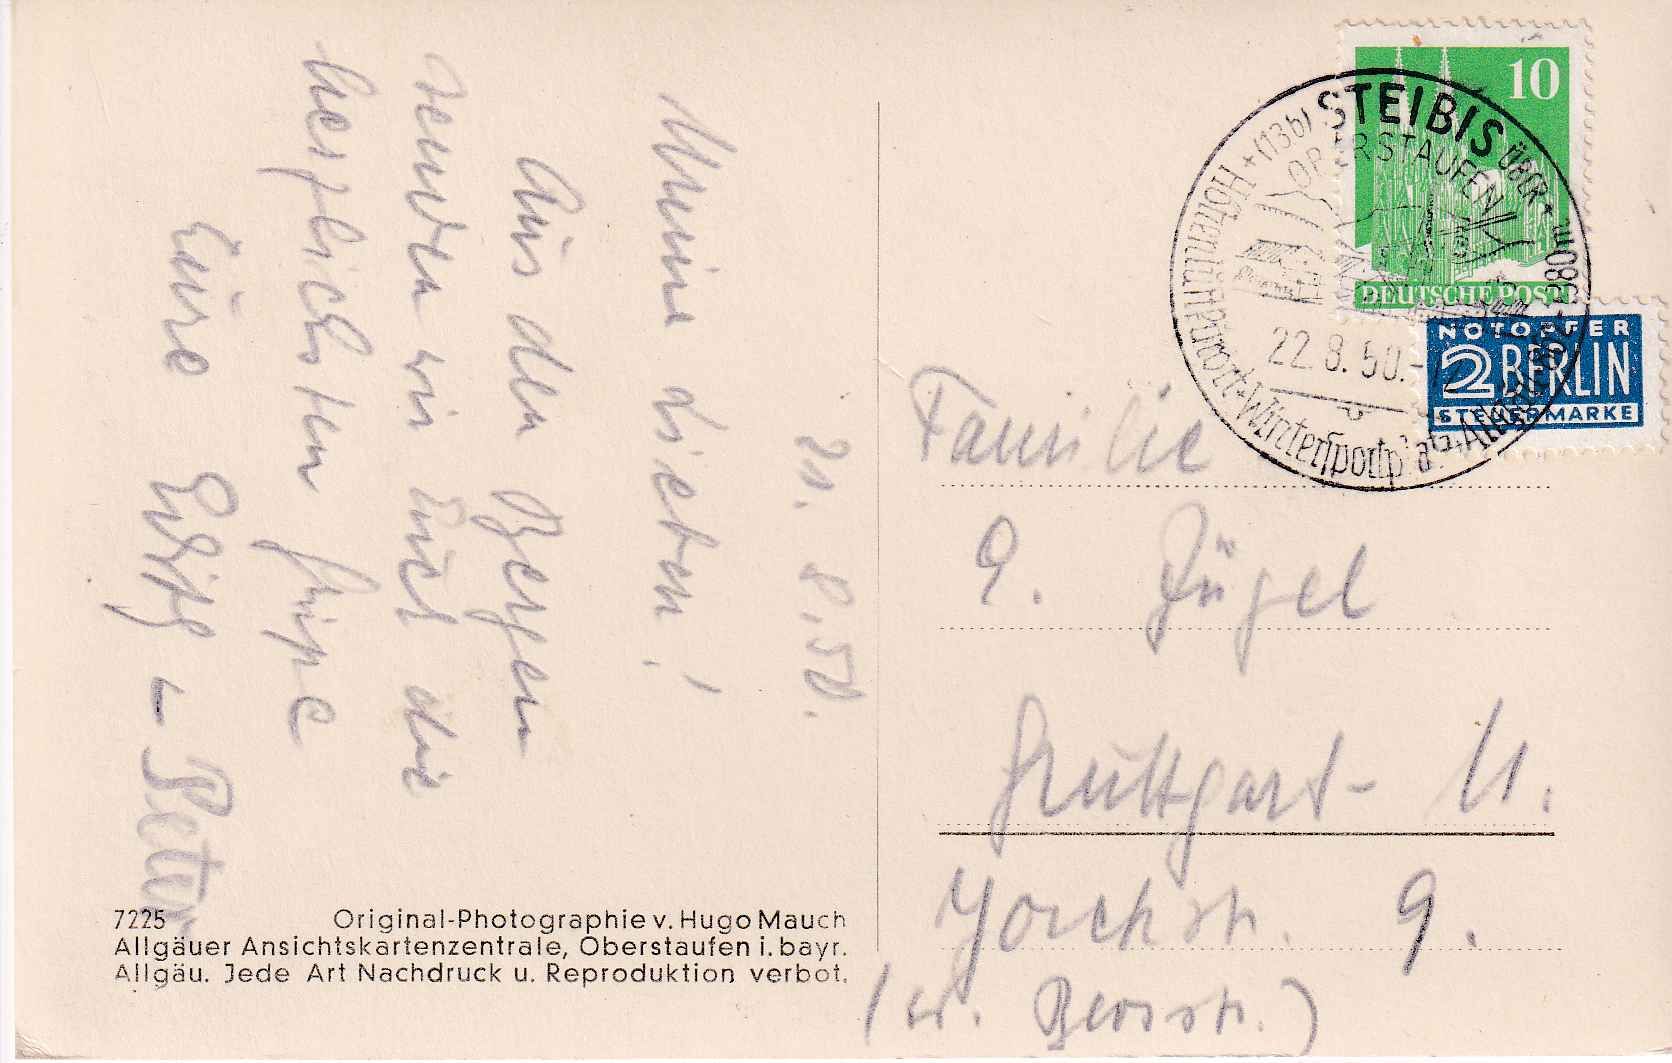 21. 8. 50.
Meine Lieben!
Aus den Bergen
senden wir Euch die
herzlichsten Grüße
Eure
Peter
7225 Original-Photographie v. Hugo Mauch
Allgäuer Ansichtskartenzentrale, Oberstaufen i. bayr.
Allgäu. Jede Art Nachdruck u. Reproduktion verbot.
10
DEUTSCHE POST
NOTOPFER
2 BERLIN
STEUERMARKE
(13b) STEIBIS ÜBER
OBERSTAUFEN
Höhenluftkurort-Wintersportplatz, Allgäu
22.8.50.-12
Familie
E. Zügel
Stuttgart- W.
Yorckstr. 9.